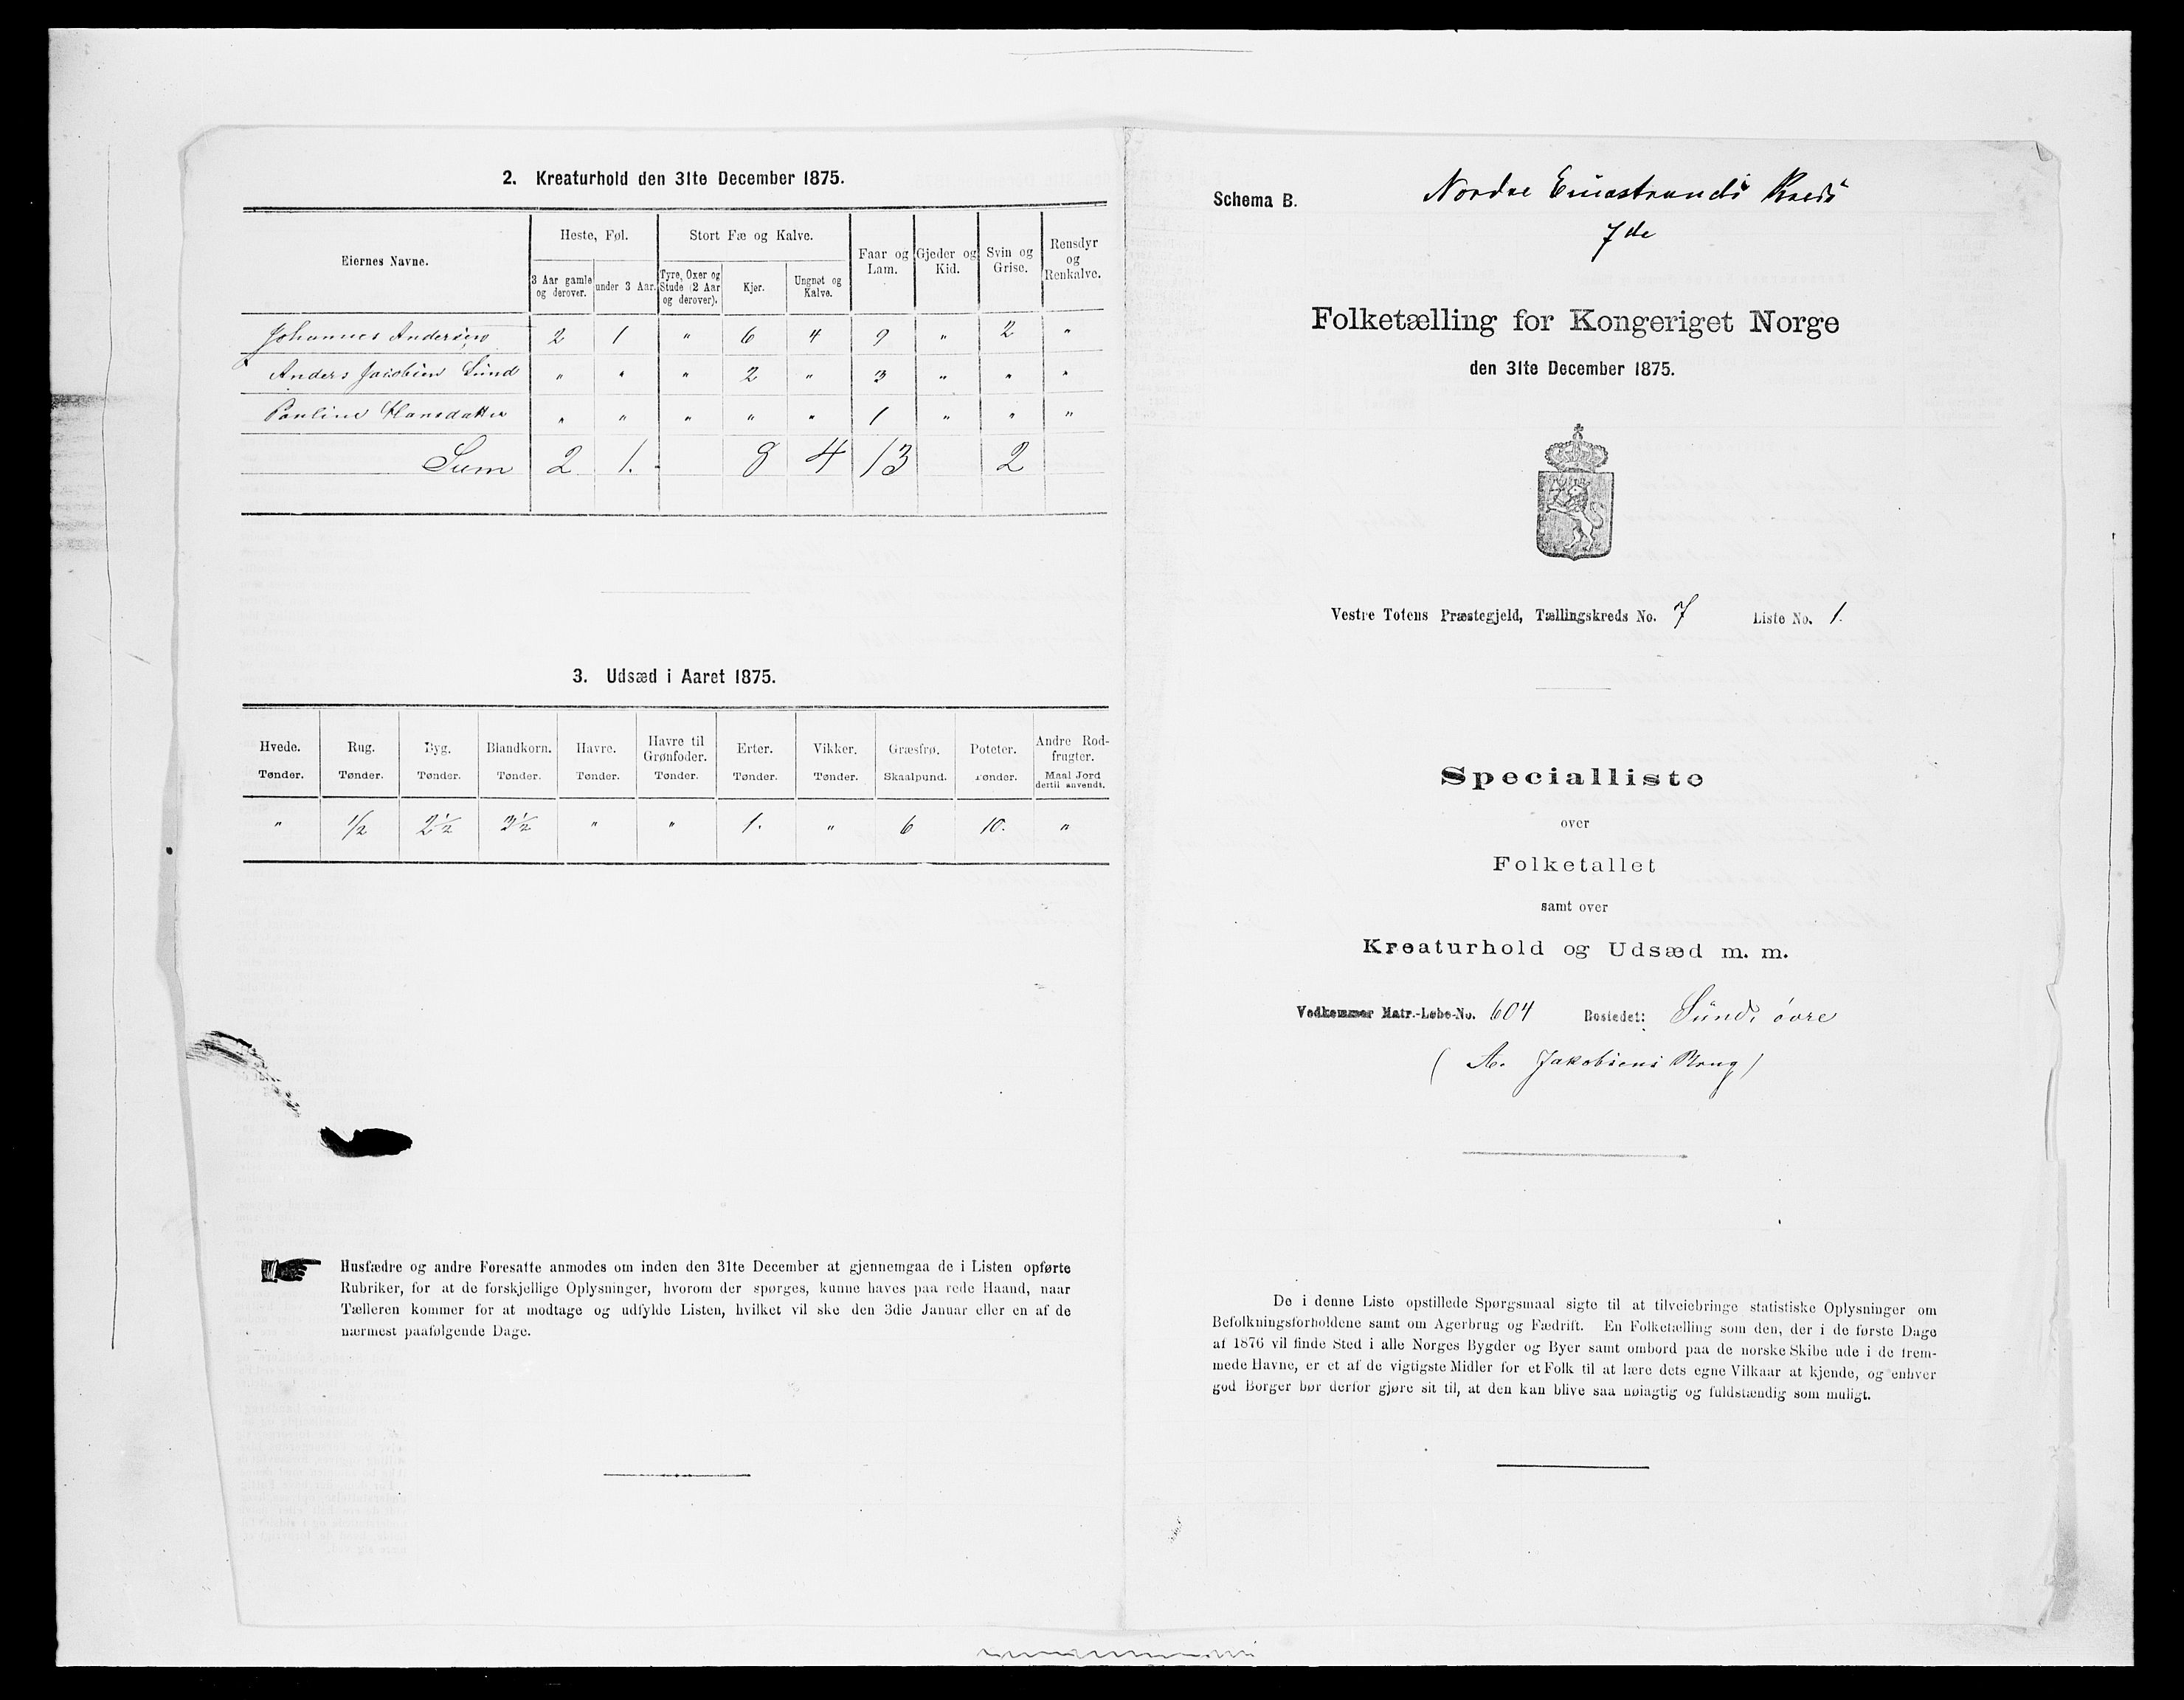 2. Kreaturhold den 31te December 1875.
Eiernes Navne.
Heste, Føl.
Stort Fæ og Kalve.
Faar og Lam.
Gjeder og Kid.
Svin og Grise.
Rensdyr og Renkalve.
3 Aar gamle og derover.
under 3 Aar.
Tyre, Oxer og Stude (2 Aar og derover).
Kjør.
Ungnøt og Kalve.
Johannes Andersen 2 1 " 6 4 9 " 2 "
Anders Jacobsen Sund " " " 2 " 3 " " "
Pauline Hansdatter " " " " " 1 " " "
Sum 2 1. 8 4 13 2
3. Udsæd i Aaret 1875.
Hvede. Rug. Byg. Blandkorn. Havre. Havre til Grønfoder. Erter. Vikker. Græsfrø. Poteter. Andre Rodfrugter.
Tønder. Tønder. Tønder. Tønder. Tønder. Tønder. Tønder. Tønder. Skaalpund. Tønder. Maal Jord dertil anvendt.
" 1/2 2 1/2 3 1/2 " " 1. " 6 10. "
Husfædre og andre Foresatte anmodes om inden den 31te December at gjennemgaa de i Listen opførte
Rubriker, for at de forskjellige Oplysninger, hvorom der spørges, kunne haves paa rede Haand, naar
Tælleren kommer for at modtage og udfylde Listen, hvilket vil ske den 3die Januar eller en af de
nærmest paafølgende Dage.
Schema B.
Nordre Einastrands Kreds
7de
Folketælling for Kongeriget Norge
den 31te December 1875.
Vestre Totens Præstegjeld, Tællingskreds No. 7 Liste No. 1.
Specialliste
over
Folketallet
samt over
Kreaturhold og Udsæd m. m.
Vedkommer Matr.-Løbe-No. 604 Bostedet: Sund, øvre
(A. Jakobsens Brug)
De i denne Liste opstillede Spørgsmaal sigte til at tilveiebringe statistiske Oplysninger om
Befolkningsforholdene samt om Agerbrug og Fædrift. En Folketælling som den, der i de første Dage
af 1876 vil finde Sted i alle Norges Bygder og Byer samt ombord paa de norske Skibe ude i de frem-
mede Havne, er et af de vigtigste Midler for et Folk til at lære dets egne Vilkaar at kjende, og enhver
god Borger bør derfor gjøre sit til, at den kan blive saa nøiagtig og fuldstændig som muligt.